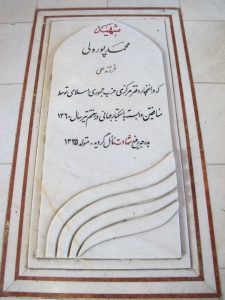 شهید
محمد پورولی
فرزند علی
که در انفجار دفتر مرکزی حزب جمهوری اسلامی توسط
منافقین وابسته به استکبار جهانی در هفتم تیر سال ۱۳۶۰
بدرجه رفیع شهادت نائل گردید. متولد ۱۳۲۵